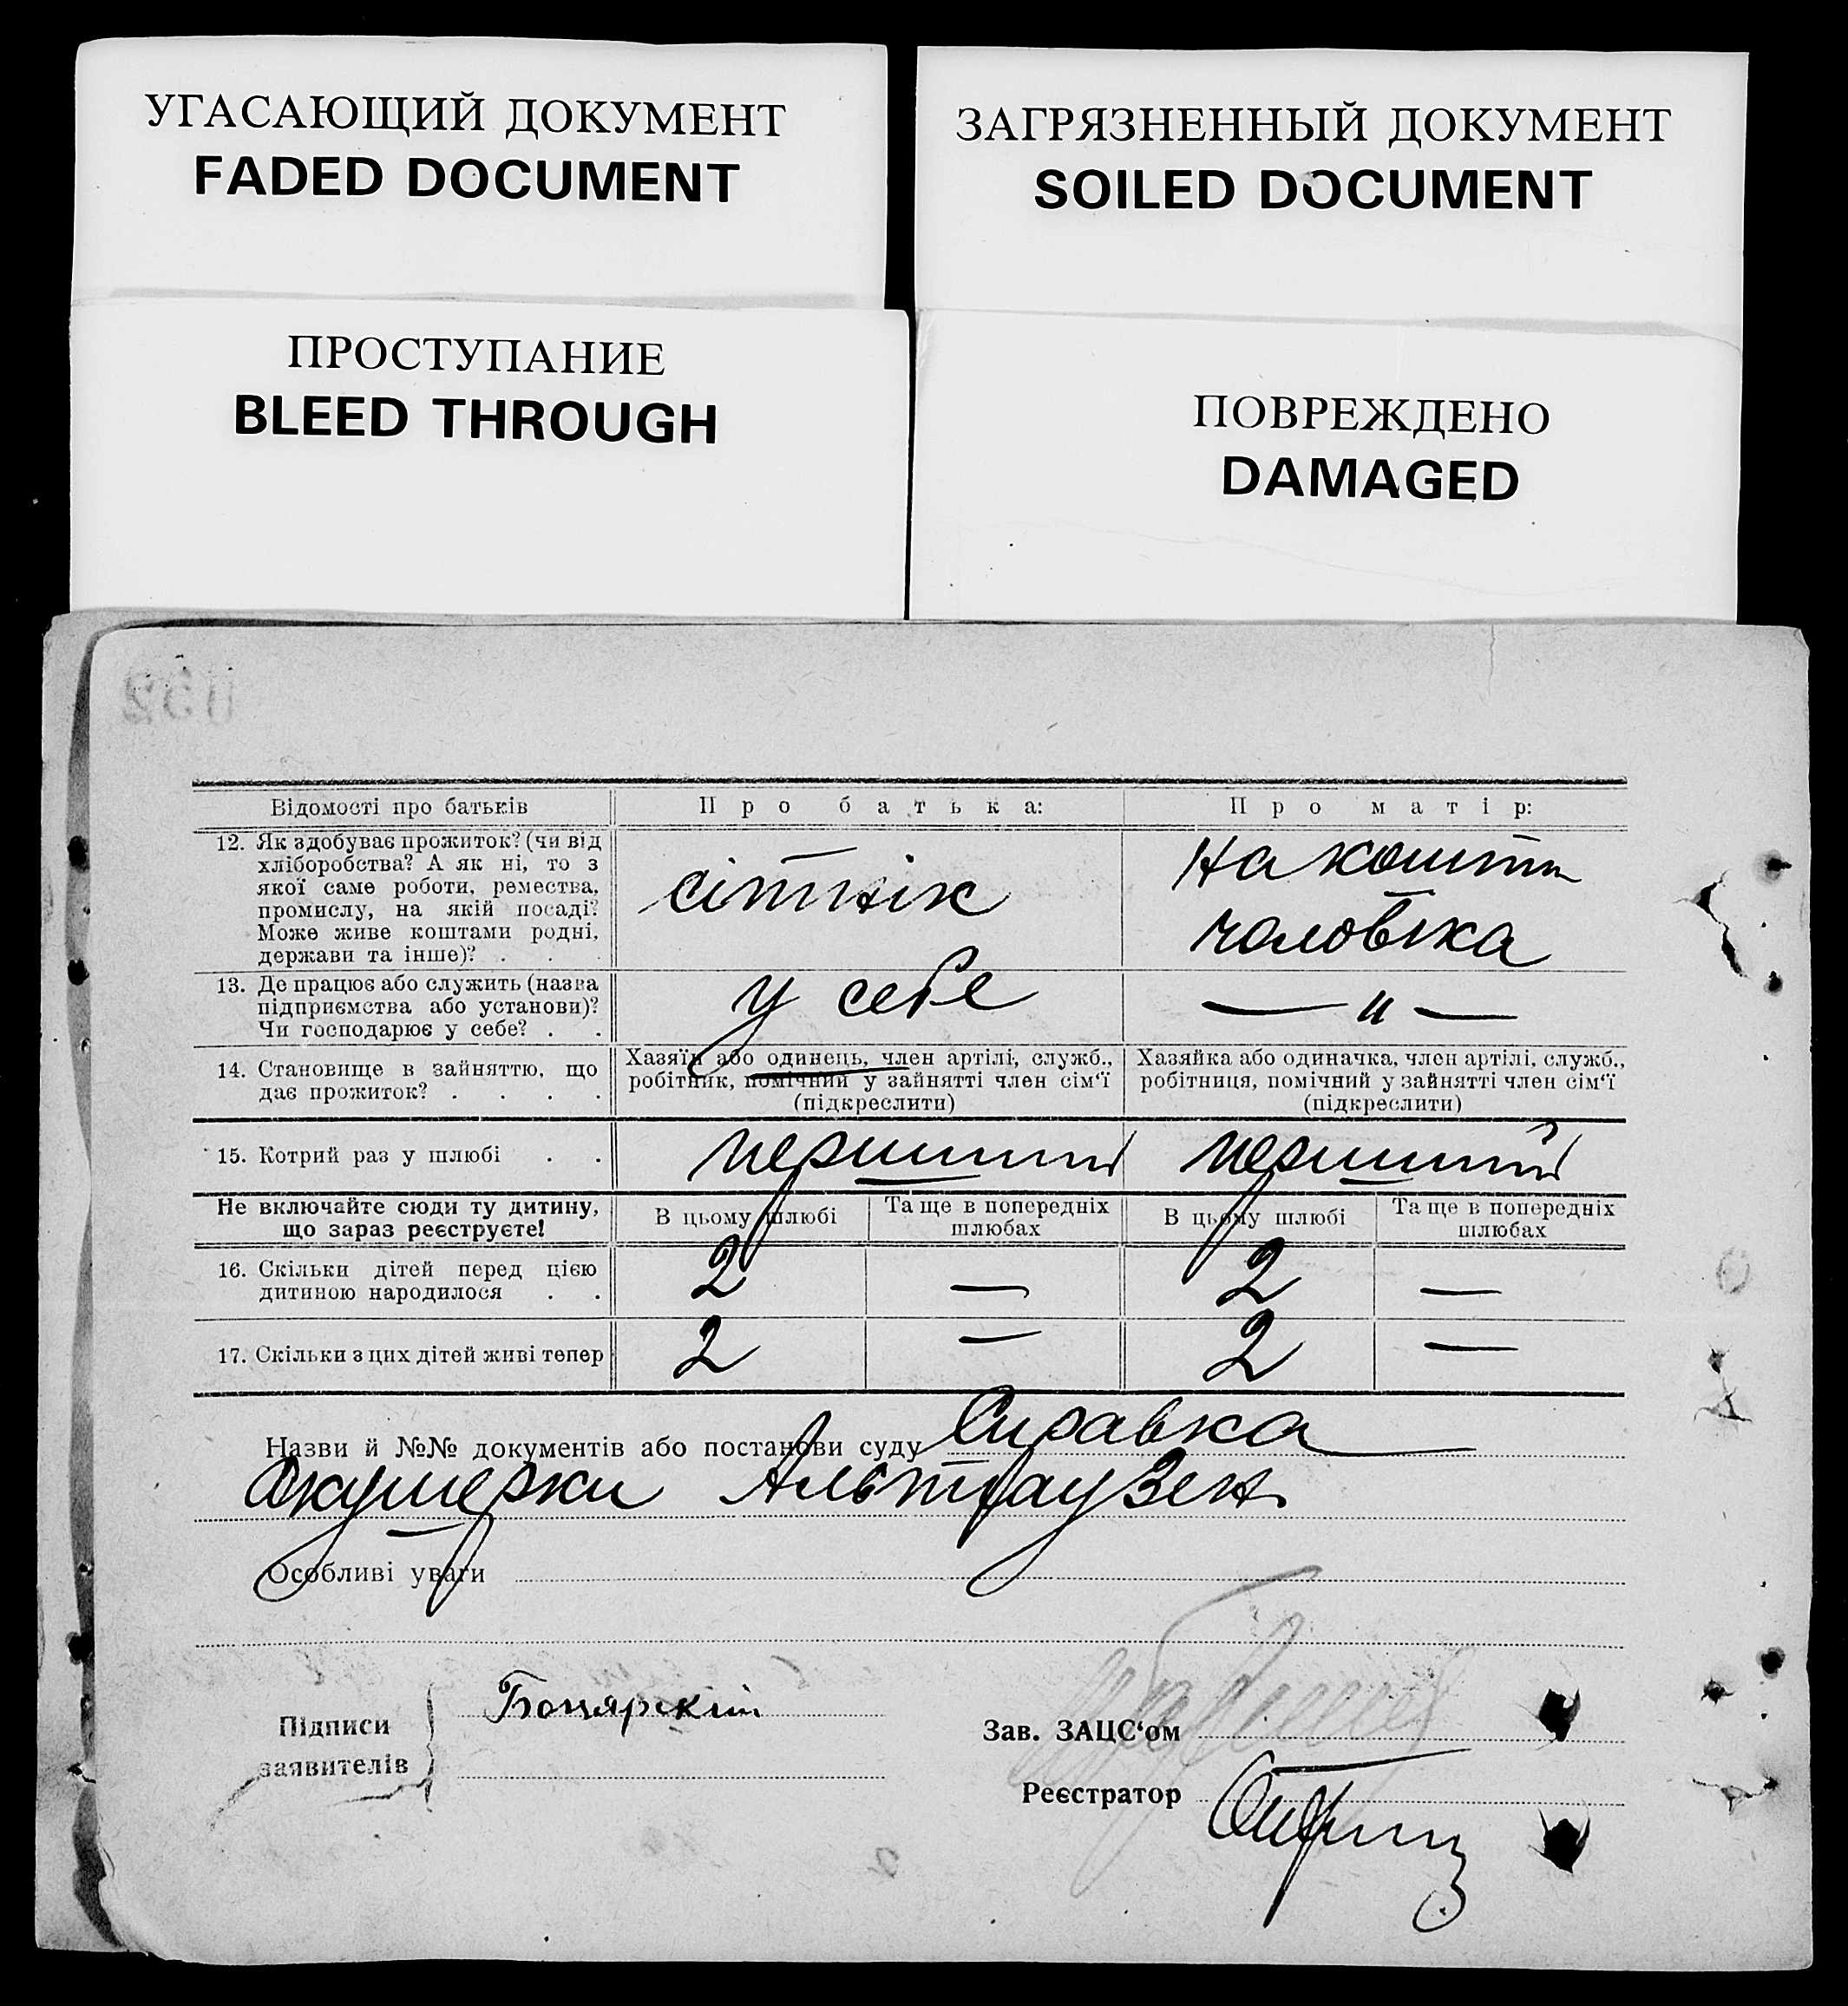 УГАСАЮЩИЙ ДОКУМЕНТ
FADED DOCUMENT
ЗАГРЯЗНЕННЫЙ ДОКУМЕНТ
SOILED DOCUMENT
ПРОСТУПАНИЕ
BLEED THROUGH
ПОВРЕЖДЕНО
DAMAGED
Відомості про батьків
Про батька:
Про матір:
12. Як здобуває прожиток? (чи від
хліборобства? А як ні, то з
якої саме роботи, ремества,
промислу, на якій посаді?
Може живе коштами родні,
держави та інше)? . . .
сітнік
На кошти
чоловіка
13. Де працює або служить (назва
підприємства або установи)?
Чи господарює у себе? . .
у себе
— „ —
14. Становище в зайняттю, що
дає прожиток? . . . .
Хазяїн або одинець, член артілі, служб.,
робітник, помічний у зайнятті член сім'ї
(підкреслити)
Хазяйка або одиначка, член артілі, служб.,
робітниця, помічний у зайнятті член сім'ї
(підкреслити)
15. Котрий раз у шлюбі . .
перший
перший
Не включайте сюди ту дитину,
що зараз реєструєте!
В цьому шлюбі
Та ще в попередніх
шлюбах
В цьому шлюбі
Та ще в попередніх
шлюбах
16. Скільки дітей перед цією
дитиною народилося . .
2
—
2
—
17. Скільки з цих дітей живі тепер
2
—
2
—
Назви й №№ документів або постанови суду Справка
Акушерки Альтгаузен
Особливі уваги
Підписи
заявителів
Боцярскій
Зав. ЗАЦС'ом
Реєстратор